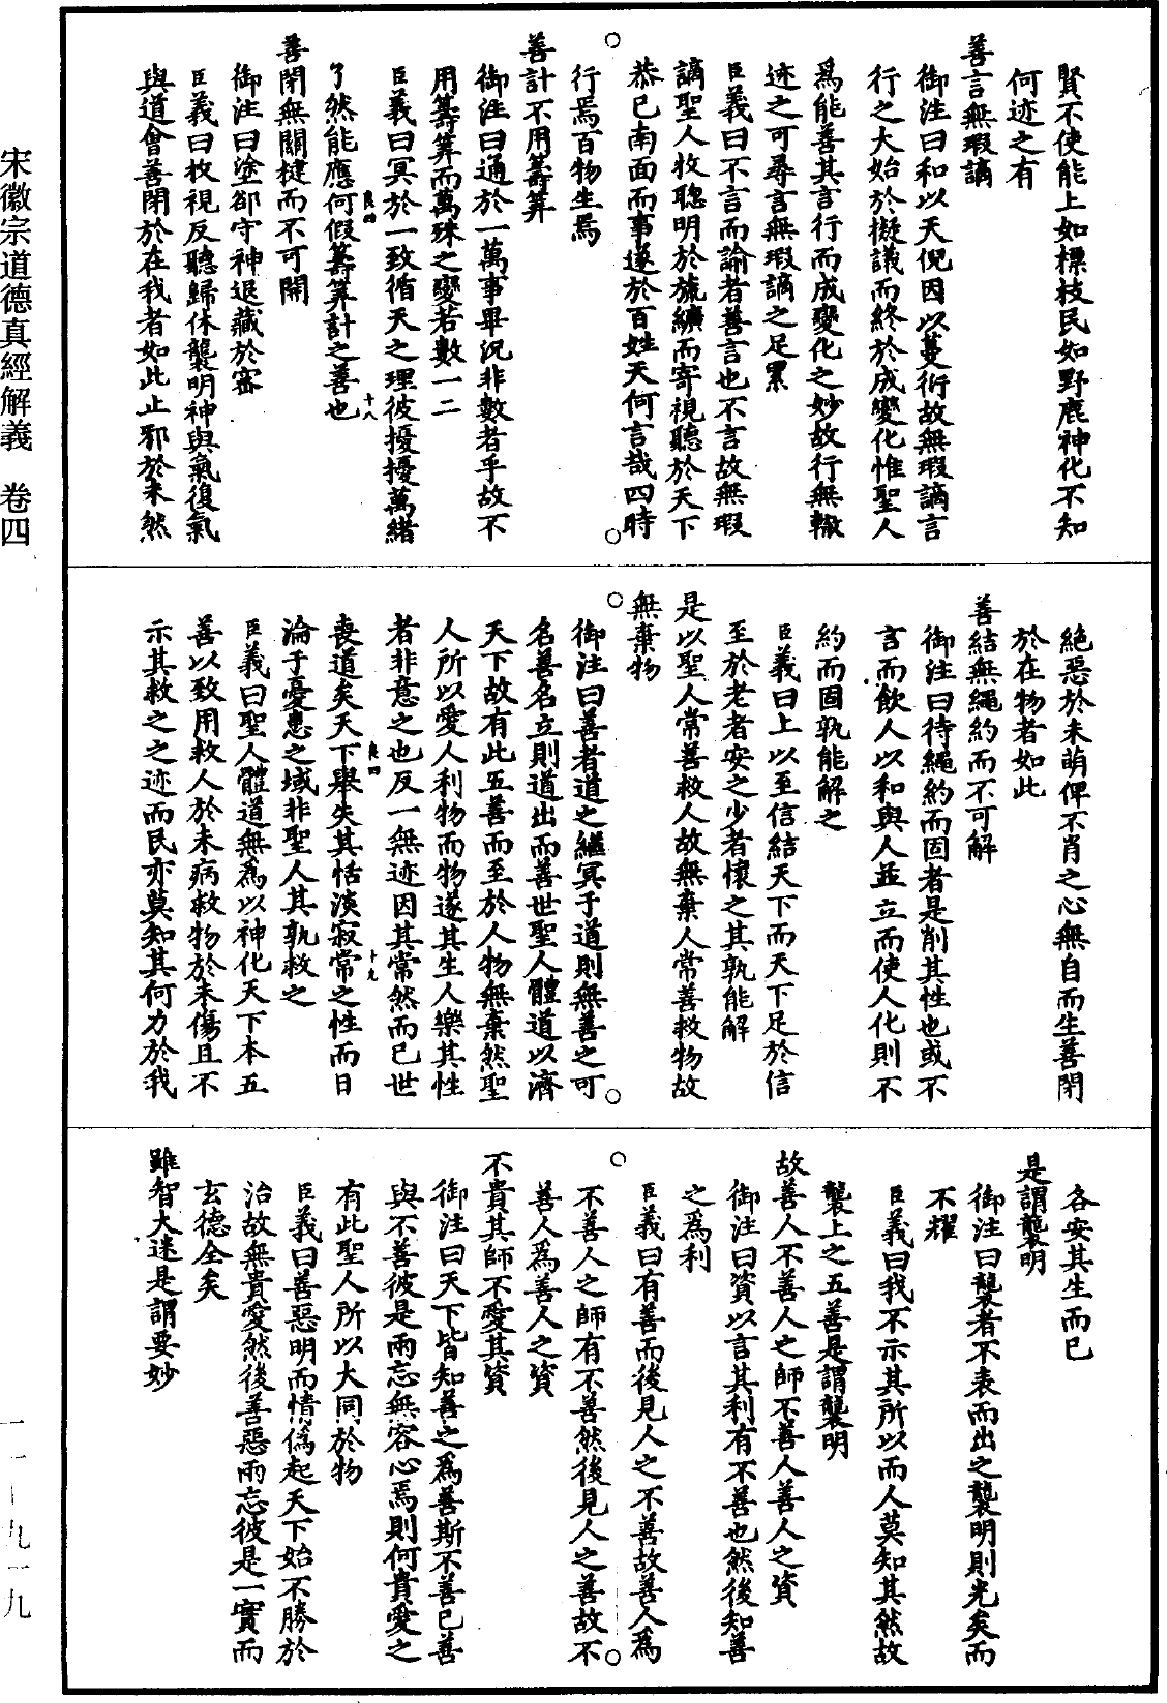 賢不使能上如標枝民如野鹿神化不知
何迹之有
善言無瑕謫
御注曰和以天倪因以蔓衍故無瑕謫言
行之大始於擬議而終於成變化惟聖人
爲能善其言行而成變化之妙故行無轍
迹之可尋言無瑕謫之足累
臣義曰不言而諭者善言也不言故無瑕
謫聖人收聰明於旒纊而寄視聽於天下
恭己南面而事遂於百姓天何言哉四時
行焉百物生焉
善計不用籌筭
御注曰通於一萬事畢況非數者乎故不
用籌筭而萬殊之變若數一二
臣義曰冥於一致循天之理彼擾擾萬緒
良四 十八
了然能應何假籌筭計之善也
善閉無關楗而不可開
御注曰塗郤守神退藏於密
臣義曰收視反聽歸休襲明神與氣復氣
與道會善閉於在我者如此止邪於未然
絶惡於未萌俾不肖之心無自而生善閉
於在物者如此
善結無繩約而不可解
御注曰待繩約而固者是削其性也或不
言而飲人以和與人並立而使人化則不
約而固孰能解之
臣義曰上以至信結天下而天下足於信
至於老者安之少者懷之其孰能解
是以聖人常善救人故無棄人常善救物故
無棄物
御注曰善者道之繼冥于道則無善之可
名善名立則道出而善世聖人體道以濟
天下故有此五善而至於人物無棄然聖
人所以愛人利物而物遂其生人樂其性
者非意之也反一無迹因其常然而已世
良四 十九
喪道矣天下舉失其恬淡寂常之性而日
淪于憂患之域非聖人其孰救之
臣義曰聖人體道無爲以神化天下本五
善以致用救人於未病救物於未傷且不
示其救之之迹而民亦莫知其何力於我
各安其生而已
是謂襲明
御注曰襲者不表而出之襲明則光矣而
不耀
臣義曰我不示其所以而人莫知其然故
襲上之五善是謂襲明
故善人不善人之師不善人善人之資
御注曰資以言其利有不善也然後知善
之爲利
臣義曰有善而後見人之不善故善人爲
不善人之師有不善然後見人之善故不
善人爲善人之資
不貴其師不愛其資
御注曰天下皆知善之爲善斯不善已善
與不善彼是兩忘無容心焉則何貴愛之
有此聖人所以大同於物
臣義曰善惡明而情僞起天下始不勝於
治故無貴愛然後善惡兩忘彼是一實而
玄德全矣
雖智大迷是謂要妙
宋徽宗道德真經解義 卷四
一一—九一九